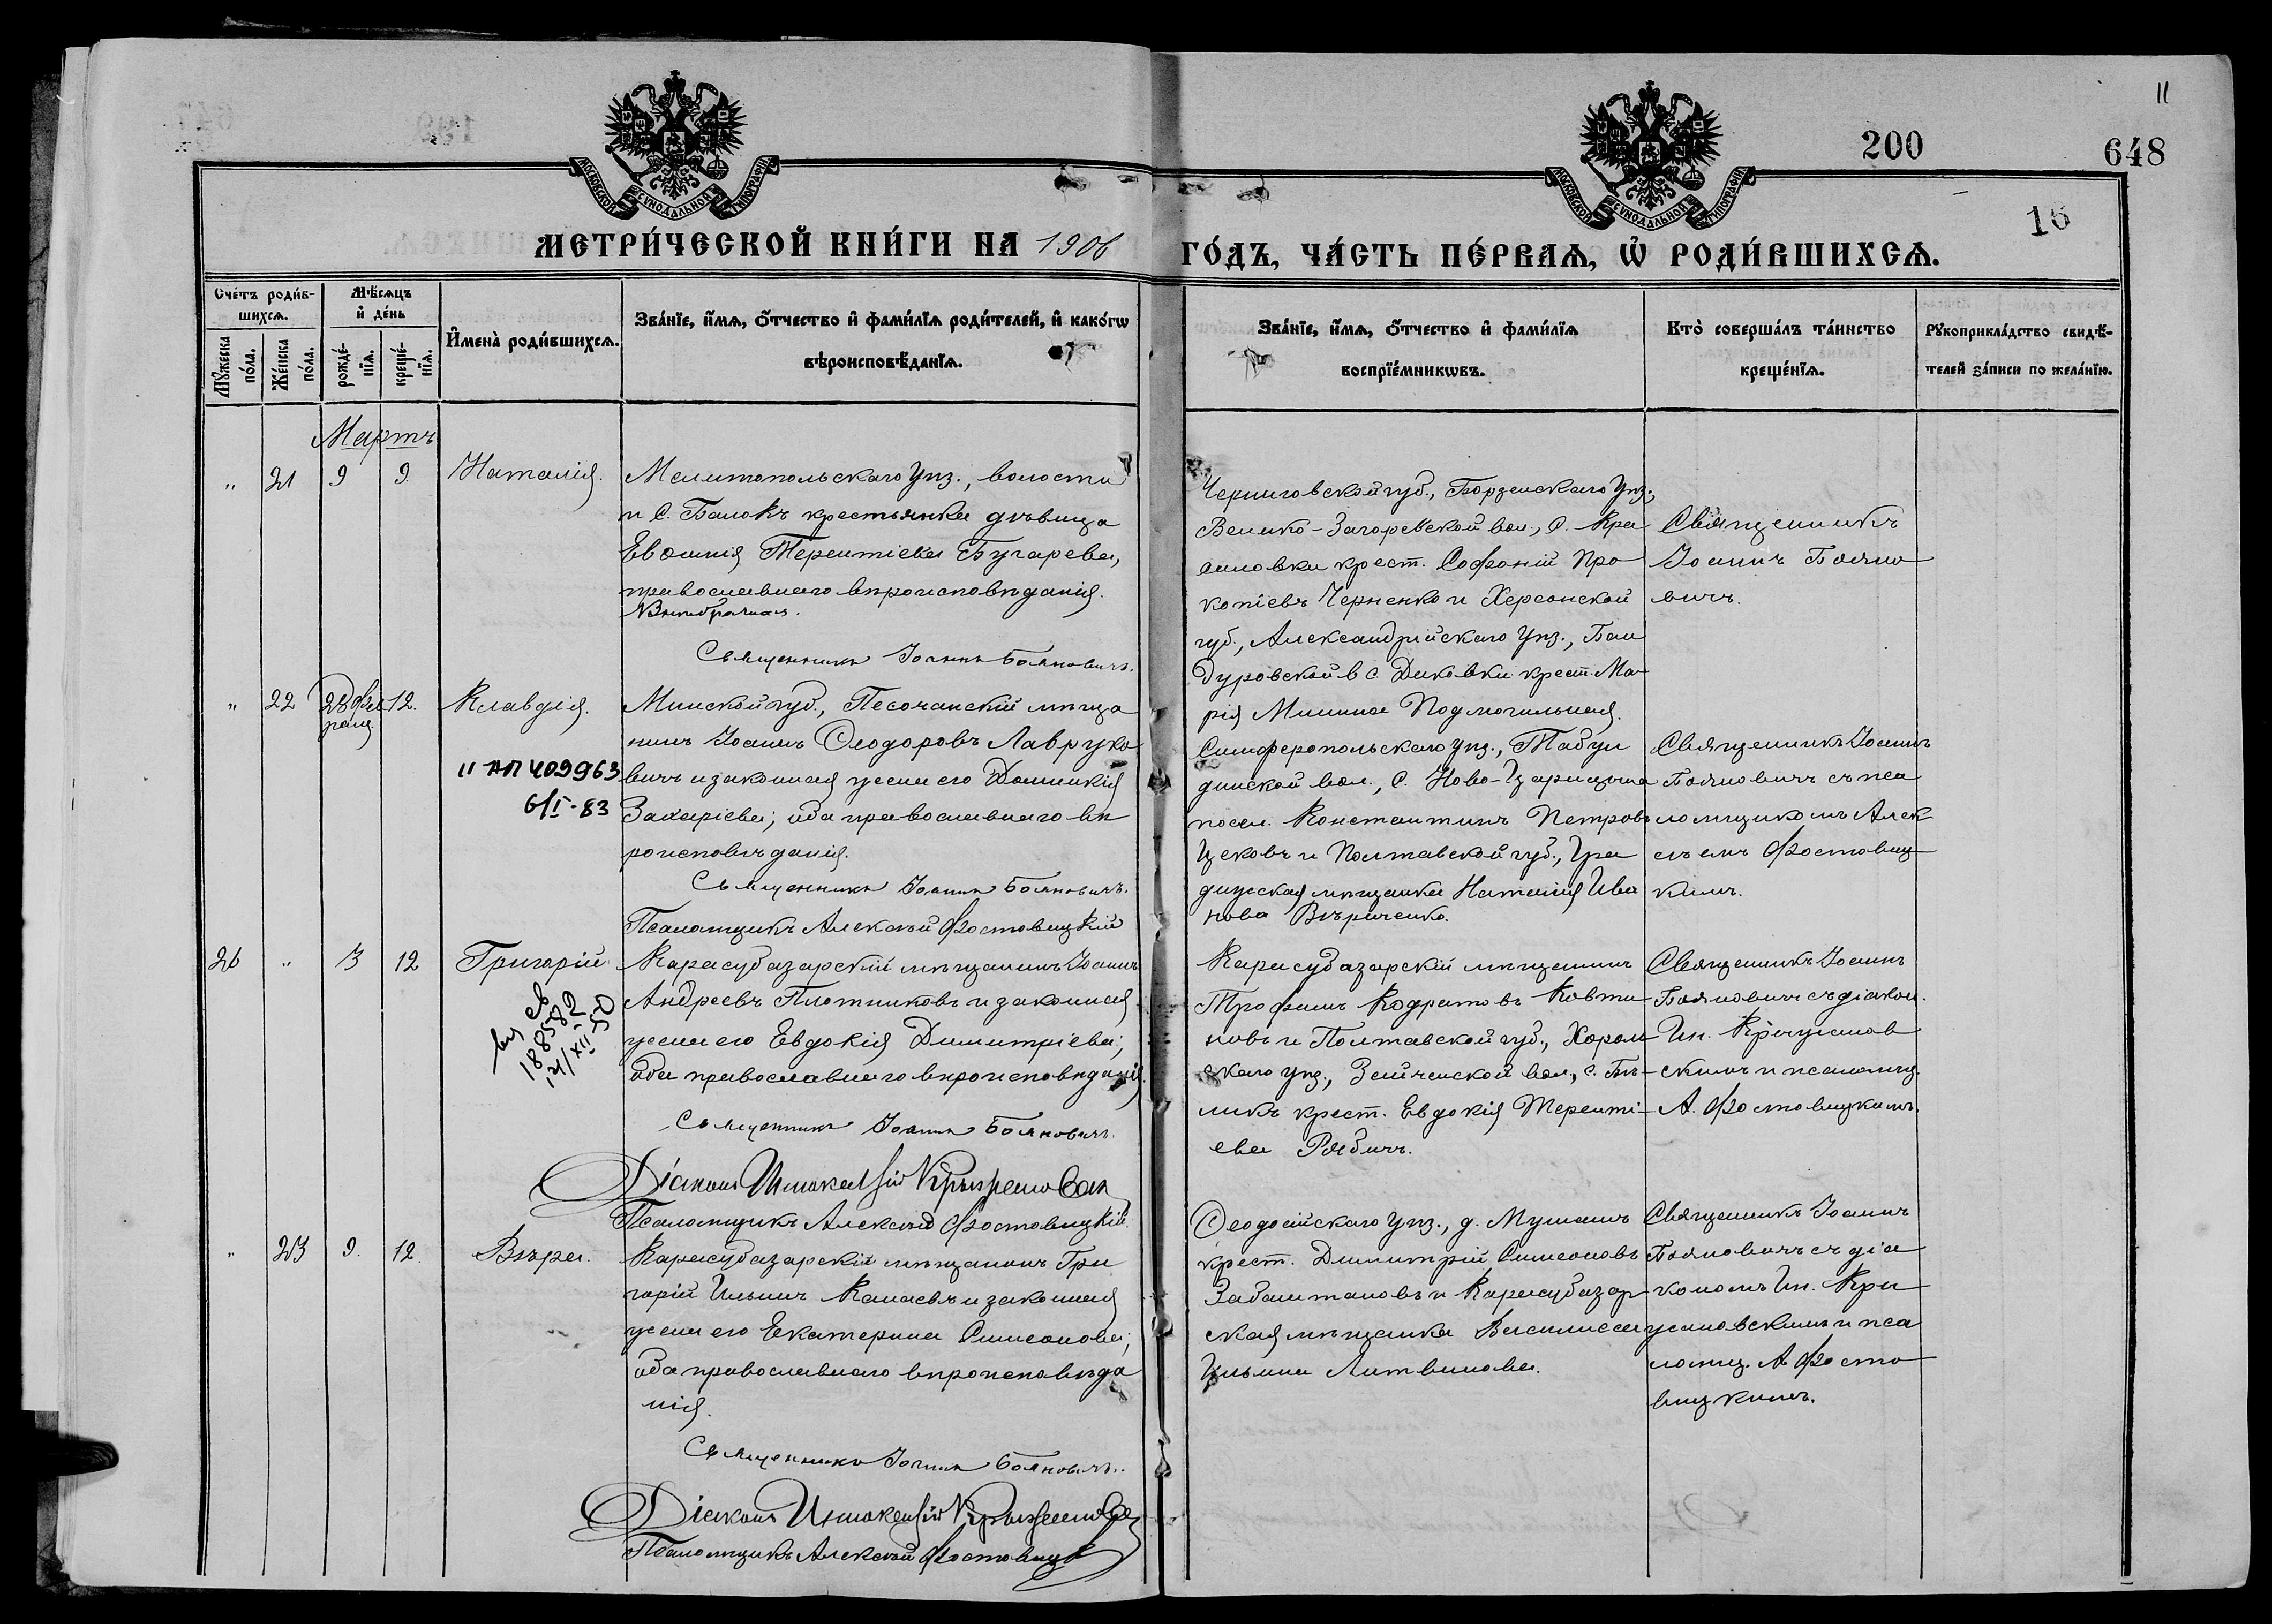 11
200
648
16
МОСКОВСКОЙ СѴНОДАЛЬНОЙ ТИПОГРАФІИ
МОСКОВСКОЙ СѴНОДАЛЬНОЙ ТИПОГРАФІИ
МЕТРИ́ЧЕСКОЙ КНИ́ГИ НА 1906
ГО́ДЪ, ЧА́СТЬ ПЕ́РВАѦ, Ѡ҆ РОДИ́ВШИХСѦ.
Сче́тъ роди́в-
шихсѧ.
Мѣ́сѧцъ
и҆ де́нь
Мꙋ́жеска
по́ла.
Же́нска
по́ла.
рожде́-
нїѧ.
креще́-
нїѧ.
И҆мена̀ роди́вшихсѧ.
Зва́нїе, и҆́мѧ, ѻ҆́тчество и҆ фами́лїѧ роди́телей, и҆ како́гѡ
вѣроисповѣ́данїѧ.
Зва́нїе, и҆́мѧ, ѻ҆́тчество и҆ фами́лїѧ
воспрїе́мникѡвъ.
Кто̀ соверша́лъ та́инство
креще́нїѧ.
Рꙋкоприкла́дство свидѣ́-
телей за́писи по жела́нїю.
Мартъ
" 21 9 9. Наталія.
Мелитопольскаго Уѣз., волости
и С. Балокъ крестьянка дѣвица
Евѳимія Терентіева Бугарева,
православнаго вѣроисповѣданія.
Внѣбрачная.
Священникъ Іоаннъ Бояновичъ.
Черниговской губ., Борзенскаго Уѣз.,
Велико-Загоревской вол., С. Кра
силовки крест. Софроній Про
копіевъ Черненко и Херсонской
губ., Александрійскаго Уѣз., Бан
дуровской в. с. Диковки крест. Ма-
рія Минина Подмогильная.
Священникъ
Іоаннъ Бояно
вичъ.
" 22 28 Фев
раля 12. Клавдія.
II АП 409963
6/I-83
Минской губ., Песочанскій мѣща
нинъ Іоаннъ Ѳеодоровъ Лавруко
вичъ и законная жена его Домникія
Захаріева; оба православнаго вѣ
роисповѣданія.
Священникъ Іоаннъ Бояновичъ.
Псаломщикъ Алексѣй Фостовицкій
Симферопольскаго Уѣз., Табул
динской вол., С. Ново-Царицына
посел. Константинъ Петровъ
Цековъ и Полтавской губ., Гра
дижская мѣщанка Наталія Ива
нова Вѣриченко.
Священникъ Іоаннъ
Бояновичъ съ пса
ломщикомъ Алек
сѣемъ Фостовиц
кимъ.
26 " 3 12 Григорій
188582
21/XII 50
Карасубазарскій мѣщанинъ Іоаннъ
Андреевъ Плотниковъ и законная
жена его Евдокія Димитріева;
оба православнаго вѣроисповѣданія.
Священникъ Іоаннъ Бояновичъ.
Діаконъ Иннокентій
Псаломщикъ Алексѣй Фостовицкій.
Карасубазарскій мѣщанинъ
Трофимъ Кодратовъ Ковти
новъ и Полтавской губ., Хорол
скаго уѣз., вол., с. Бѣ-
ликъ крест. Евдокія Теренті-
ева Рябичъ.
Священникъ Іоаннъ
Бояновичъ съ діакон.
Ин. Крыжанов
скимъ и псаломщ.
А. Фостовицкимъ.
" 23 9. 12. Вѣра.
Карасубазарскій мѣщанинъ Гри
горій Ильинъ Канаевъ и законная
жена его Екатерина Симеонова;
оба православнаго вѣроисповѣда
нія.
Священникъ Іоаннъ Бояновичъ.
Діаконъ Иннокентій
Псаломщикъ Алексѣй Фостовицк
Ѳеодосійскаго Уѣз., д. Мушашъ
крест. Димитрій Симеоновъ
Забаштановъ и Карасубазар
ская мѣщанка Василисса
Ильина Литвинова.
Священникъ Іоаннъ
Бояновичъ съ діа
кономъ Ин. Кры
жановскимъ и пса
ломщ. А. Фосто
вицкимъ.